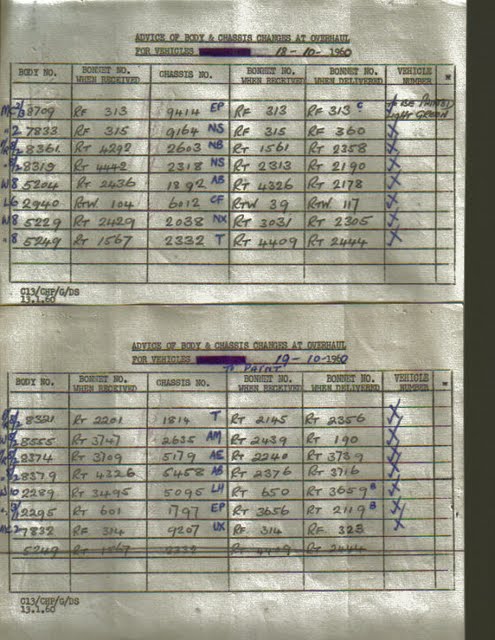 ADVICE OF BODY & CHASSIS CHANGES AT OVERHAUL
FOR VEHICLES 18-10-1960
BODY NO. BONNET NO. WHEN RECEIVED CHASSIS NO. BONNET NO. WHEN RECEIVED BONNET NO. WHEN DELIVERED VEHICLE NUMBER
TO BE PAINTED LIGHT GREEN
8709 RF 313 9414 EP RF 313 RF 313 C
7833 RF 315 9164 NS RF 315 RF 360
8361 RT 4292 2603 NB RT 1561 RT 2358
8319 RT 4442 2318 NS RT 2313 RT 2190
W8 5204 RT 2436 1892 AB RT 4326 RT 2178
L6 2940 RTW 104 6012 CF RTW 39 RTW 117
W8 5229 RT 2429 2038 NX RT 3031 RT 2305
"8 5249 RT 1567 2332 T RT 4409 RT 2444
C13/CHP/G/DS
13.1.60
ADVICE OF BODY & CHASSIS CHANGES AT OVERHAUL
FOR VEHICLES TO PAINT 19-10-1960
BODY NO. BONNET NO. WHEN RECEIVED CHASSIS NO. BONNET NO. WHEN RECEIVED BONNET NO. WHEN DELIVERED VEHICLE NUMBER
8321 RT 2201 1814 T RT 2145 RT 2356
8555 RT 3747 2635 AM RT 2439 RT 190
2374 RT 3109 5179 AE RT 2240 RT 3739
8379 RT 4326 5458 AB RT 2376 RT 3716
W10 2289 RT 3495 5095 LH RT 650 RT 3659 B
2295 RT 601 1797 EP RT 3656 RT 2119 B
7832 RF 314 9207 UX RF 314 RF 323
5249 RT 1567 2332 RT 4409 RT 2444
C13/CHP/G/DS
13.1.60